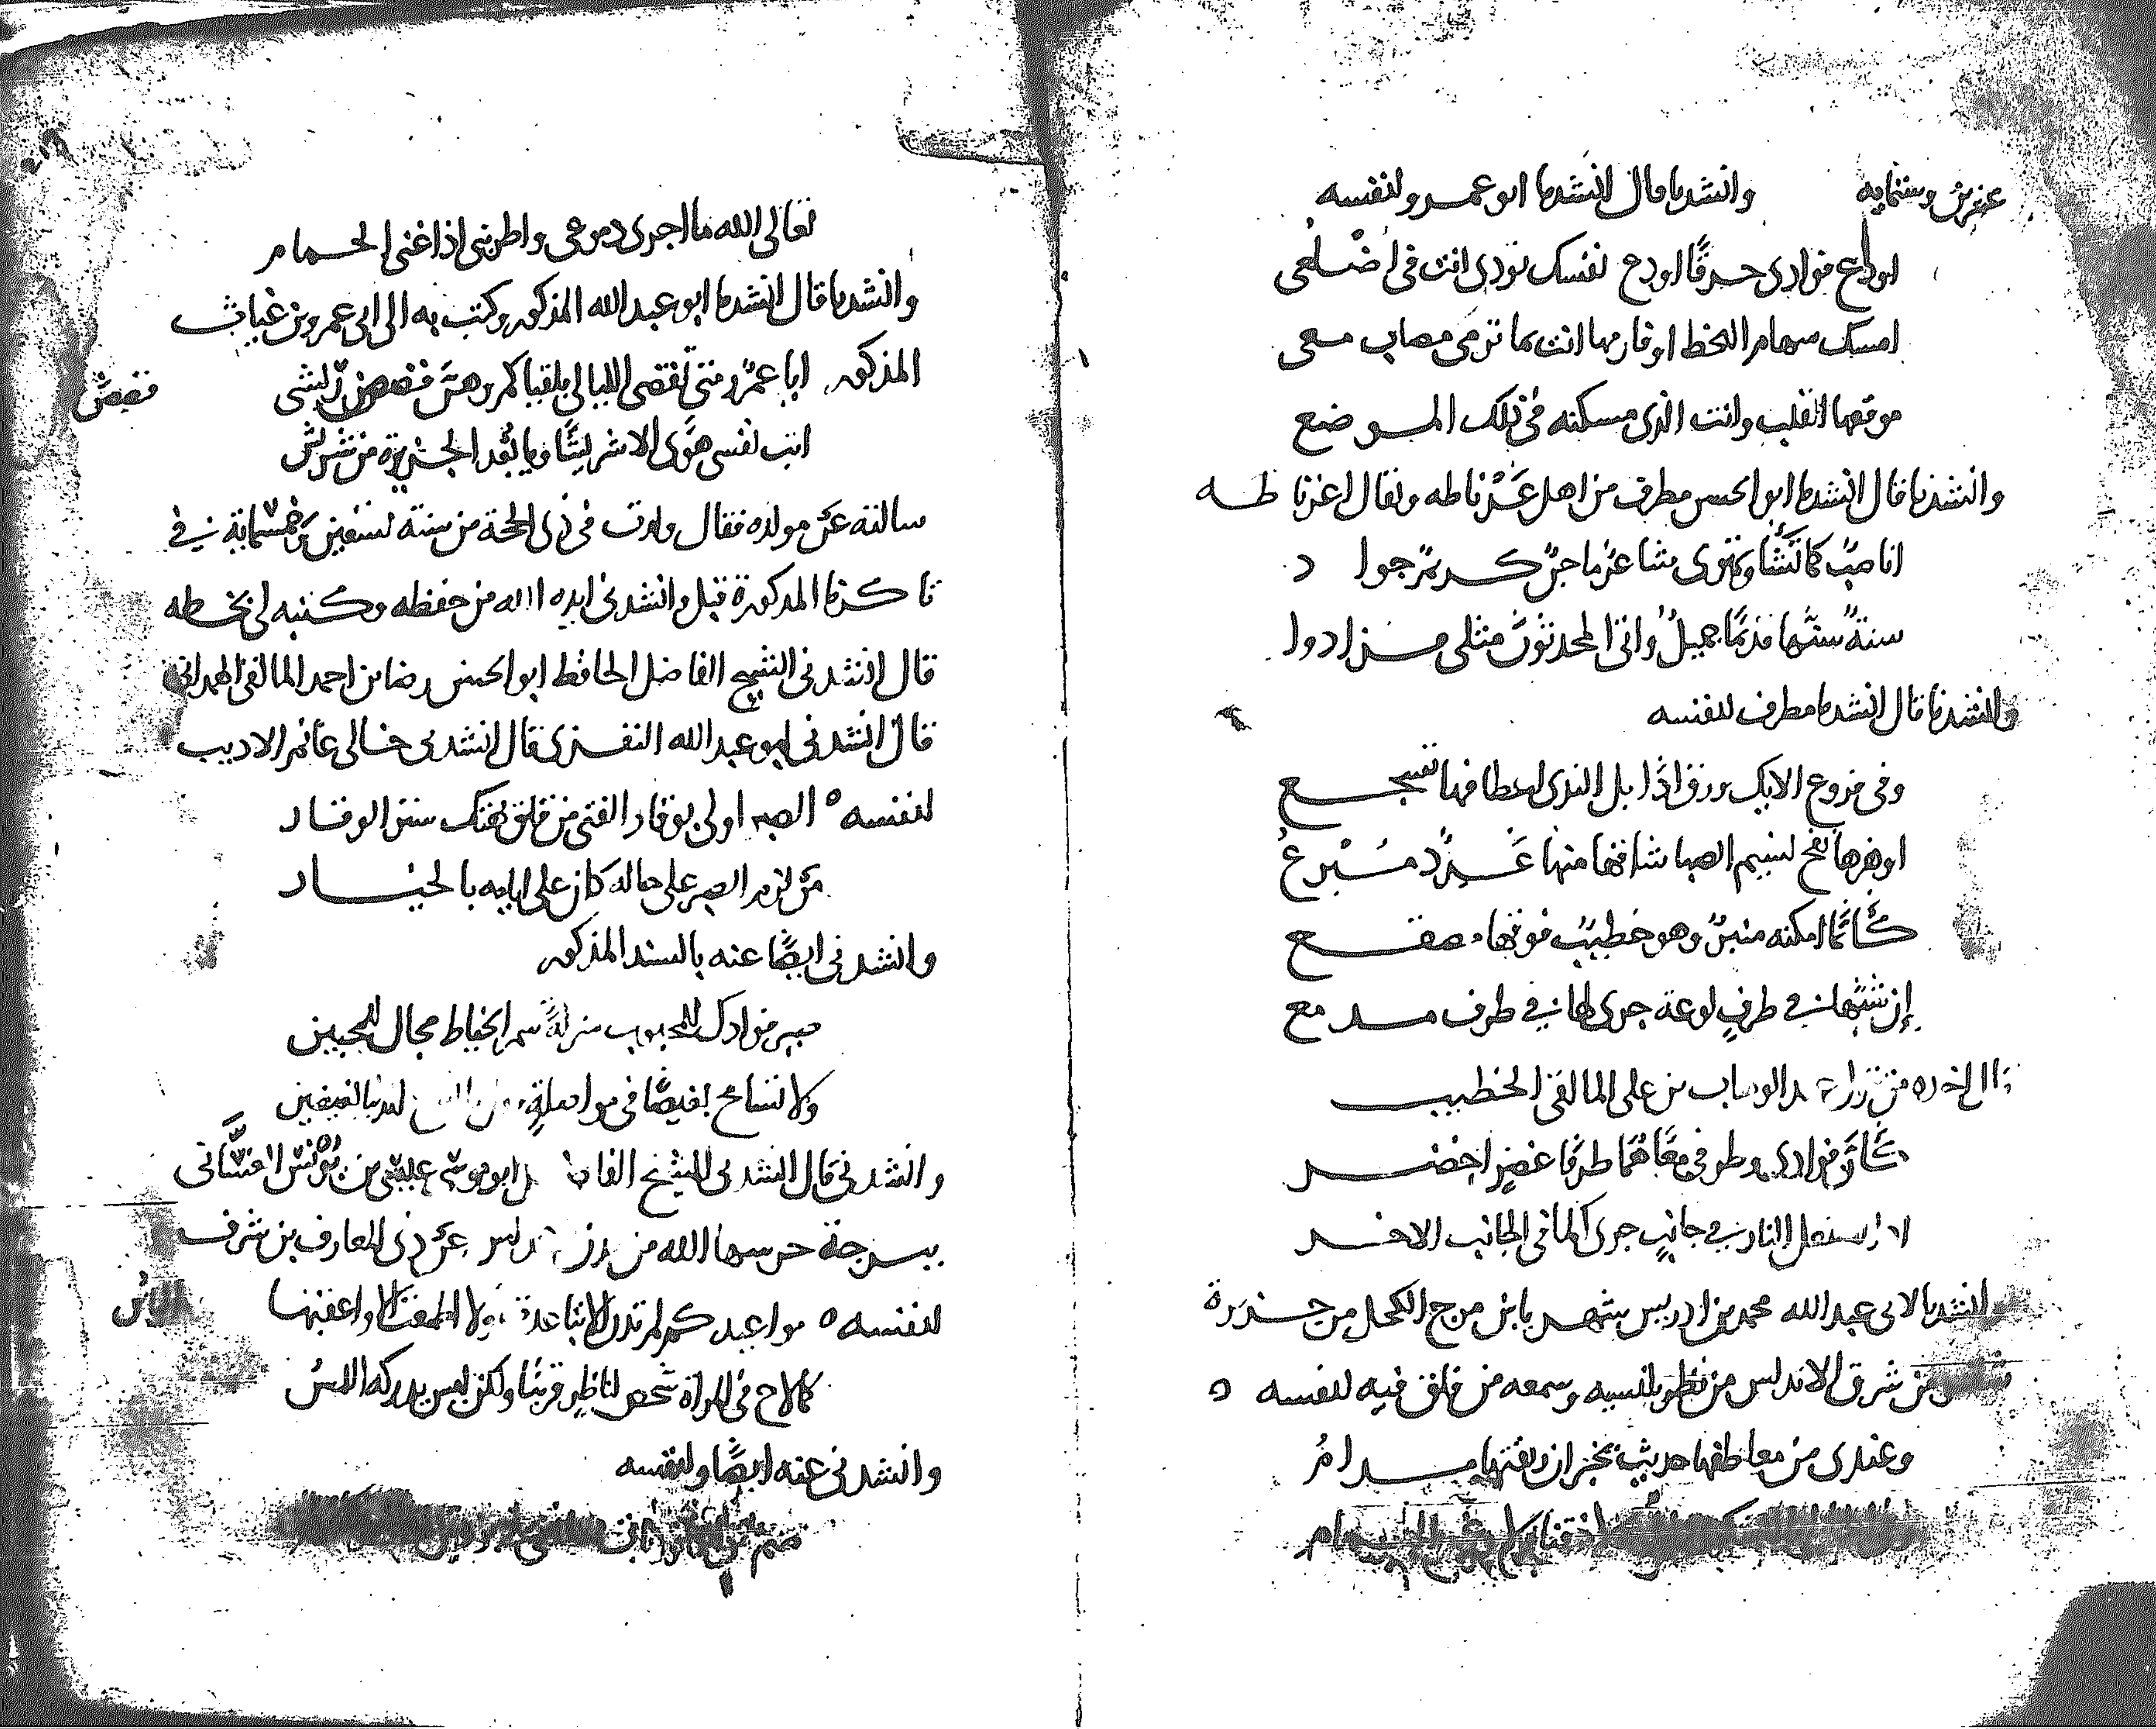 عشرين وستمايه وانشدنا قال انشدنا ابو عمرو لنفسه
اودع فوادى حرقًا او دع نفسك توذى انت فى اضلعى
امسك سهام اللحظ او فارمها انت بما ترمى مصاب معى
موقعها القلب وانت الذى مسكنه فى ذلك الموضع
وانشدنا قال انشدنا ابو الحسن مطرف من اهل غرناطه ويقال اغرناطه
انا صب كما تشا وتهوى شاعر ماجن كريم جواد
سنة سنها قديما جميل واتى المحدثون مثلى فزادوا
وانشدنا قال انشدنا مطرف لنفسه
وفى فروع الايك ورق اذا بل الندى اعطافها تسجع
او هزها نفح نسيم الصبا شاقها منها غرد مسرع
كأنما ايكته منبر وهو خطيب فوقها مصقع
إن شبها فى طرف لوعة جرى لها فى طرف مدمع
الوهاب بن على المالقى الخطيب
كأن فوادى وطرفى معًا هما طرفا غصن اخضر
النار فى جانب جرى الما فى الجانب الاخر
وانشدنا لابى عبد الله محمد بن ادريس يشتهر بابن مرج الكحل من جزيرة
شقر من شرق الاندلس من نظر بلنسيه وسمعه من فلق فيه لنفسه ه
وعندى من معاطفها حديث يخبر ان ريقتها مدام
تعالى الله ما اجرى دموعى واطربنى اذا غنى الحمام
وانشدنا قال انشدنا ابو عبد الله المذكور وكتب به الى ابى عمرو بن غياث
المذكور ابا عمرو متى تقضى الليالى بلقياكم وهن قصصن ريشى
فقصصن
ابت نفسى هوًى الا شريشًا ويا بُعد الجزيرة من شريش
سالته عن مولده فقال ولدت فى ذى الحجة من سنة تسعين وخمسماية فى
تاكرنا المذكورة قبل وانشدنى ايده الله من حفظه وكتبه لى بخطه
قال انشدنى الشيخ الفاضل الحافظ ابو الحسن رضا بن احمد المالقى الهمدانى
قال انشدنى ابو عبد الله النفزى قال انشدنى خالى غانم الاديب
لنفسه ه الصبر اولى بوقار الفتى من قلق يهتك ستر الوقار
من لزم الصبر على حاله كان على ايامه بالخيار
وانشدنى ايضًا عنه بالسند المذكور
صير فوادك للمحبوب منزلةً سم الخياط مجال للمحبين
ولا تسامح بغيضًا فى مواصلةٍ
وانشدنى قال انشدنى الشيخ ابو موسى عيسى بن يونس الغسّانى
ببرجة حرسها الله من عن ذى المعارف بن شرف
لنفسه ه مواعيد كم لم تدن الا تباعدة ولا اطمعت الا واعقبها
الياسُ
كما لاح فى المراة شخص لناظرٍ قريبًا ولكن ليس يدركه اللمسُ
وانشدنى عنه ايضًا ولنفسه